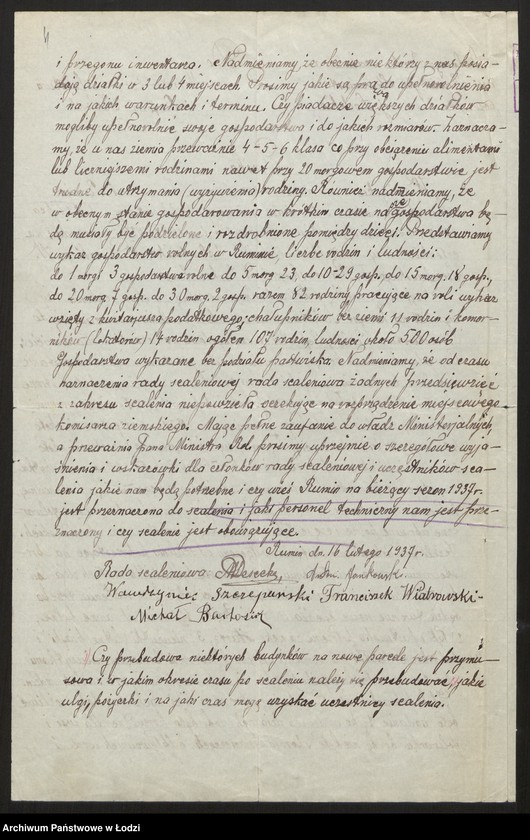 i przegonu inwentarza. Nadmieniamy że obecnie niektórzy z nas posia-
dają działki w 3 lub 4 miejscach. Prosimy jakie są do upełnorolnienia
i na jakich warunkach i terminu. Czy posiadacze większych działków
mogliby upełnorolnić swoje gospodarstwa i do jakich rozmiarów. Zaznacza-
my, że u nas ziemia przeważnie 4-5-6 klasa co przy obciążeniu alimentami
lub liczniejszemi rodzinami nawet przy 20 morgowem gospodarstwie jest
trudne do utrzymania (wyżywienia) rodziny. Również nadmieniamy, że
w obecnym stanie gospodarowania w krótkim czasie nasze gospodarstwa bę-
dą musiały być podzielone i rozdrobnione pomiędzy dzieci. Przedstawiamy
wykaz gospodarstw rolnych w Ruminie, liczbe rodzin i ludności:
do 1 morgi 3 gospodarstwa rolne do 5 morg 23, do 10-29 gosp, do 15 morg. 18 gosp.,
do 20 morg. 7 gosp. do 30 morg. 2 gosp. razem 82 rodziny pracujące na roli wykaz
wzięty z kwitarjusza podatkowego; chałupników bez ziemi 11 rodzin i komor-
ników (lokatorów) 14 rodzin ogółem 107 rodzin, ludności około 500 osób
Gospodarstwo wykazane bez podziału pastwiska. Nadmieniamy, że od czasu
naznaczenia rady scaleniowej rada scaleniowa żadnych przedsięwzięć
z zakresu scalenia niepowzięła oczekując na rozporządzenie miejscowego
komisarza ziemskiego. Mając pełne zaufanie do władz Ministerjalnych,
a Pana Ministra Rol. prosimy uprzejmie o szczegółowe wyja-
śnienia i wskazówki dla członków rady scaleniowej i uczestników sca-
lenia jakie nam będą potrzebne i czy wieś Rumin na bieżący sezon 1937 r.
jest przeznaczona do scalenia i jaki personel techniczny nam jest prze-
znaczony i czy scalenie jest obowiązujące.
Rumin dn. 16 lutego 1937 r.
Rada scaleniowa Jankowski.
Wawrzyniec Szczepański Franciszek Wiatrowski
Michał Bartosik
Czy przebudowa niektórych budynków na nowe parcele jest przymu-
sowa i w jakim okresie czasu po scaleniu należy się przebudować, jakie
ulgi, pożyczki i na jaki czas mogą uzyskać uczestnicy scalenia.
Archiwum Państwowe w Łodzi